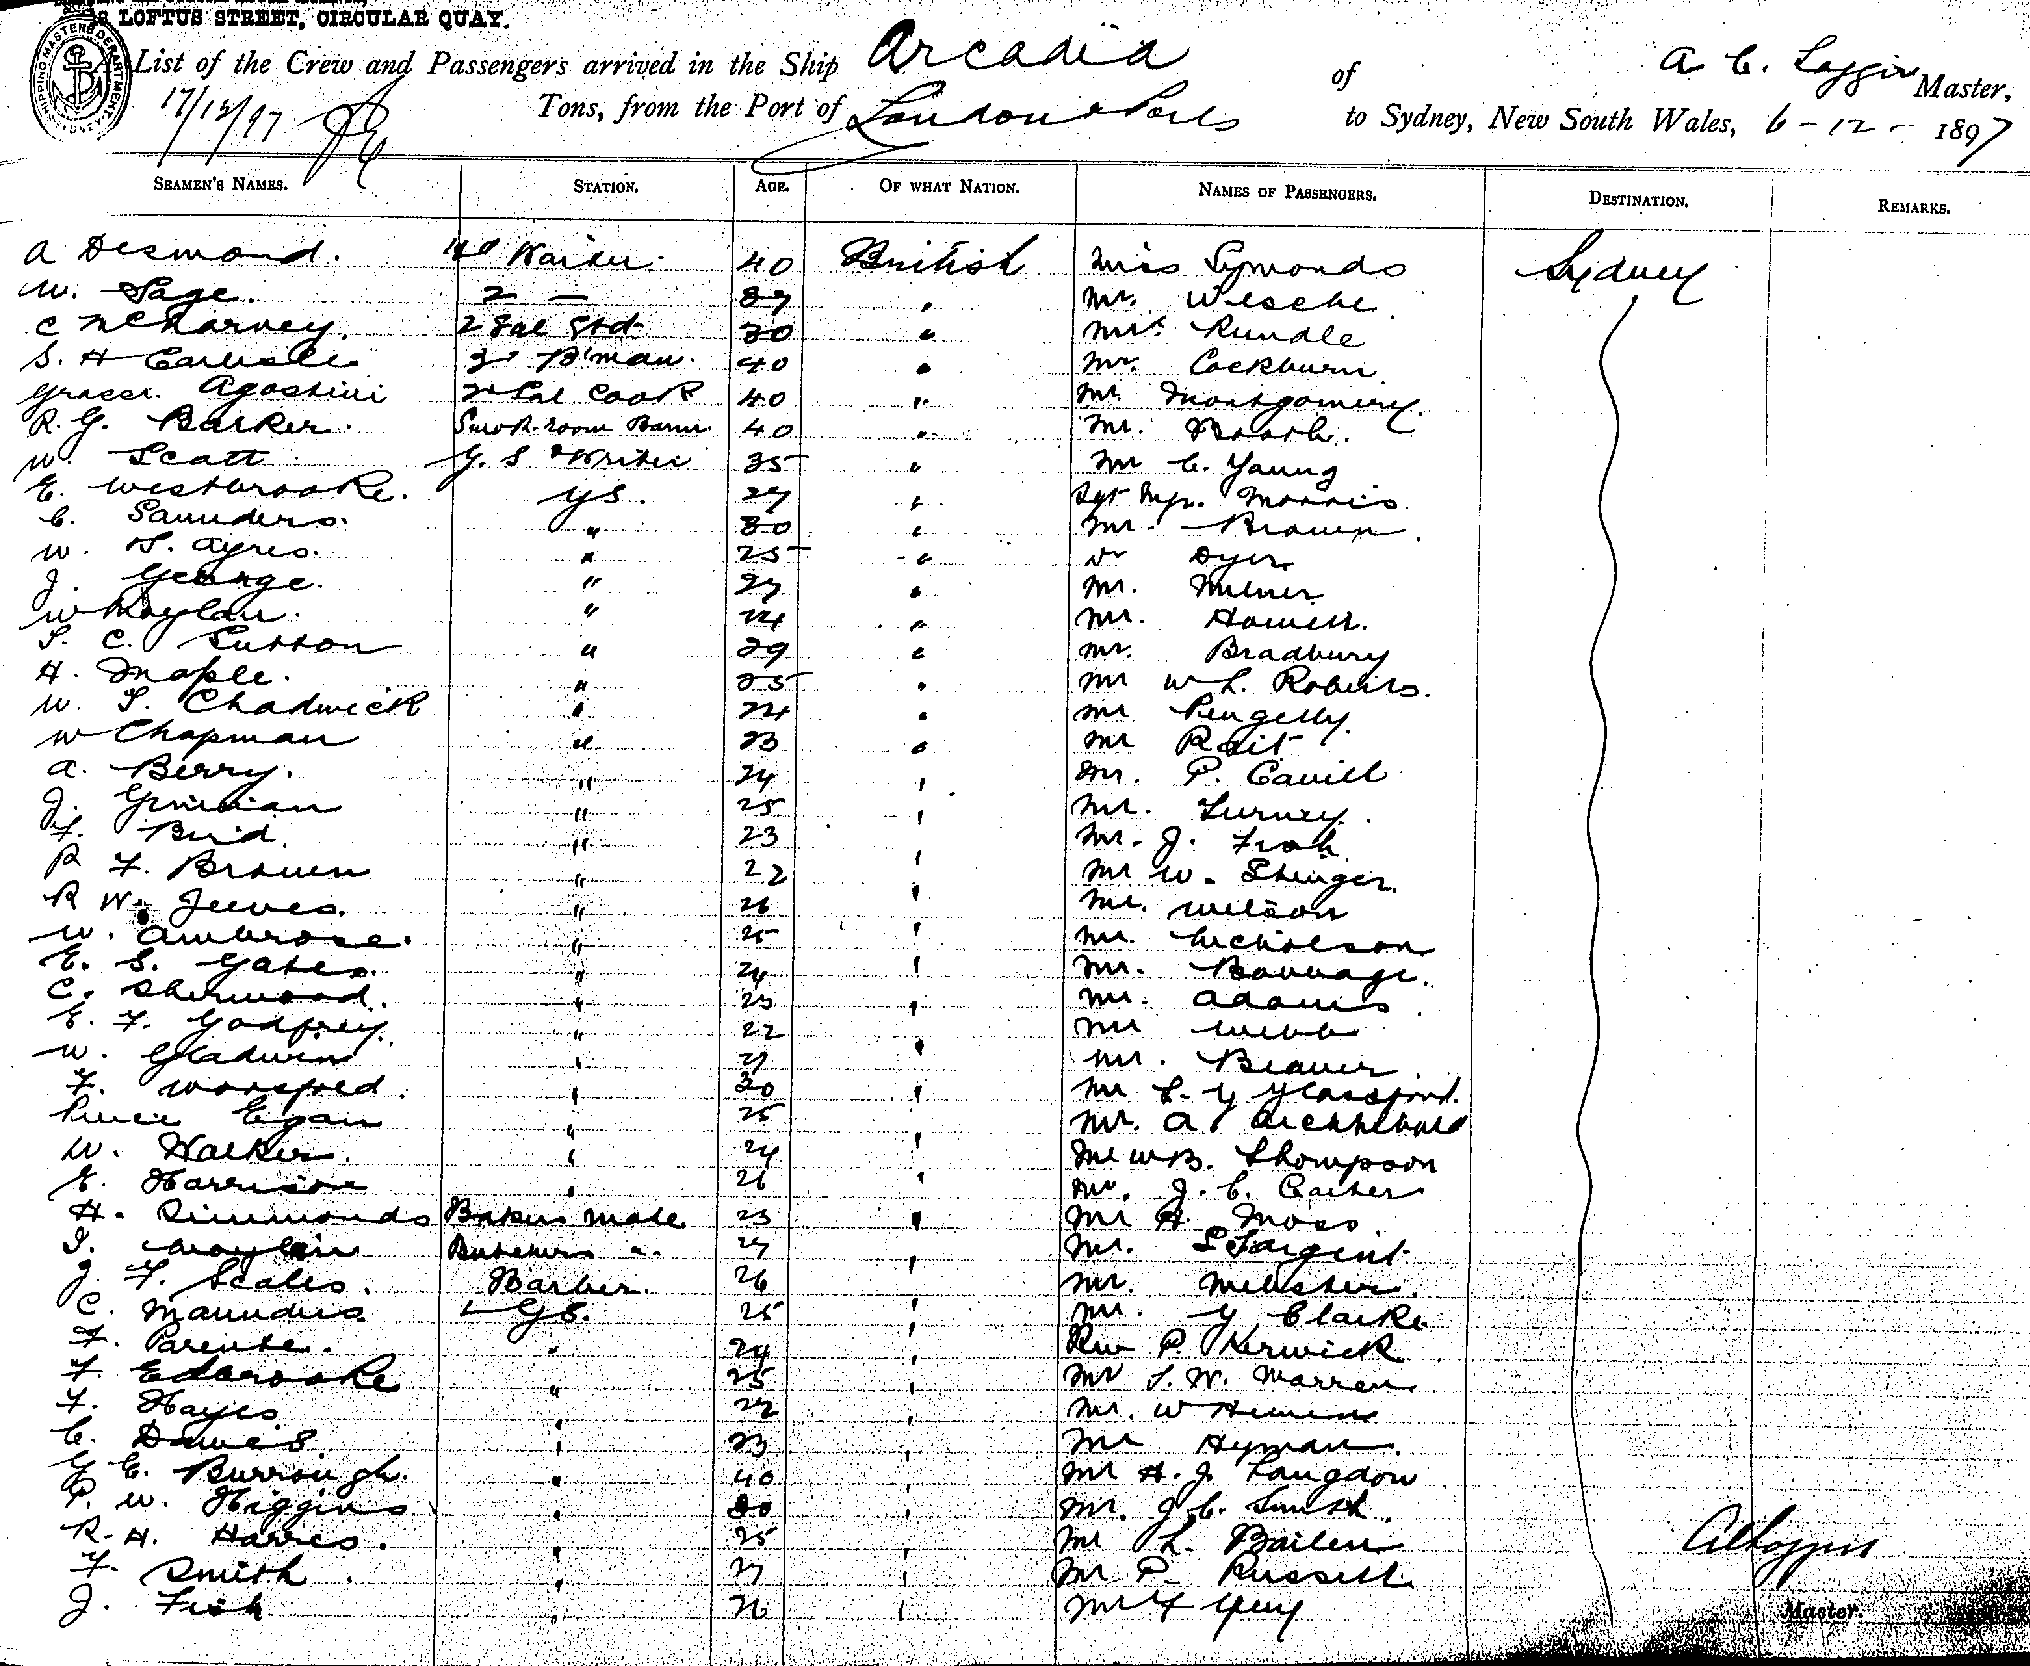 LOFTUS STREET, CIRCULAR QUAY.
SHIPPING MASTERS DEPARTMENT SYDNEY
List of the Crew and Passengers arrived in the Ship Arcadia of A C. Loggin Master,
17/12/97
Tons, from the Port of London & Ports to Sydney, New South Wales, 6 - 12 - 1897
SEAMEN'S NAMES. STATION. AGE. OF WHAT NATION. NAMES OF PASSENGERS. DESTINATION. REMARKS.
A Desmond. Waiter. 40 British Miss Symonds Sydney
W. Sage. 2 — 37 " Mr. Wesche
C McHarvey. 2 Sal Std. 30 " Mrs. Rundle
S. H Carlisle 2 B'man. 40 " Mr. Cockburn
Agostini Cook 40 " Mr. Montgomery.
R. G. Barker. Smok. room 40 " Mr. Booth.
W. Scott G. S Writer 35 " Mr C. Young
E. Westbrooke. GS. 27 " Sgt Mjr. Morris
C. Saunders. " 30 " Mr. Brown.
W. H. Ayres. " 25 " Dr Dyer
J. George. " 27 " Mr. Milner
W Moylan. " 24 " Mr. Howell.
S. C. Sutton " 29 " Mr. Bradbury
H. Maple. " 25 " Mr W L. Roberts.
W. T. Chadwick " 24 " Mr Pengelly.
W Chapman " 23 " Mr Rait
A. Berry. " 24 " Mr. P. Cavill
J. " 25 " Mr. Turney.
F. Bird. " 23 " Mr. J. Fish
R F. Brown " 22 " Mr W. Stenger.
R W. Jeeves. " 26 " Mr. Wilson
W. Ambrose. " 25 " Mr. Nicholson
E. S. Gates. " 24 " Mr.
C. Sherwood. " 23 " Mr. Adams
E. F. Godfrey. " 22 " Mr Webb
W. Gladwin " 21 " Mr. Beaver.
F. Worsfold. " 20 " Mr L. G Glassford.
Pierce Egan " 25 " Mr. A Archibald
W. Walker. " 24 " Mr W B. Thompson
E. Harrison " 26 " Mr. J. C. Carter
H. Simmonds Bakers Mate 23 " Mr H Moss
T. Moylan Butchers " 27 " Mr. Sargent
J. F. Scales. Barber. 26 " Mr. Webster.
C. Maunders. GS. 25 " Mr. G Clarke
F. Parente. " 24 " Rev P. Kerwick
F. Edbrooke " 25 " Mr S. W. Warren
F. Hayes " 22 " Mr. W
C. Dawes " 23 " Mr Hyman.
G E. Burrough. " 40 " Mr H. J. Langdon
P. W. Higgins " 30 " Mr. J. C. Smith.
R. H. Harris. " 25 " Mr L. Bailen
F. Smith. " 27 " Mr P. Russell
J. Fish " 26 " Mr F Guy
A C Loggin
Master.